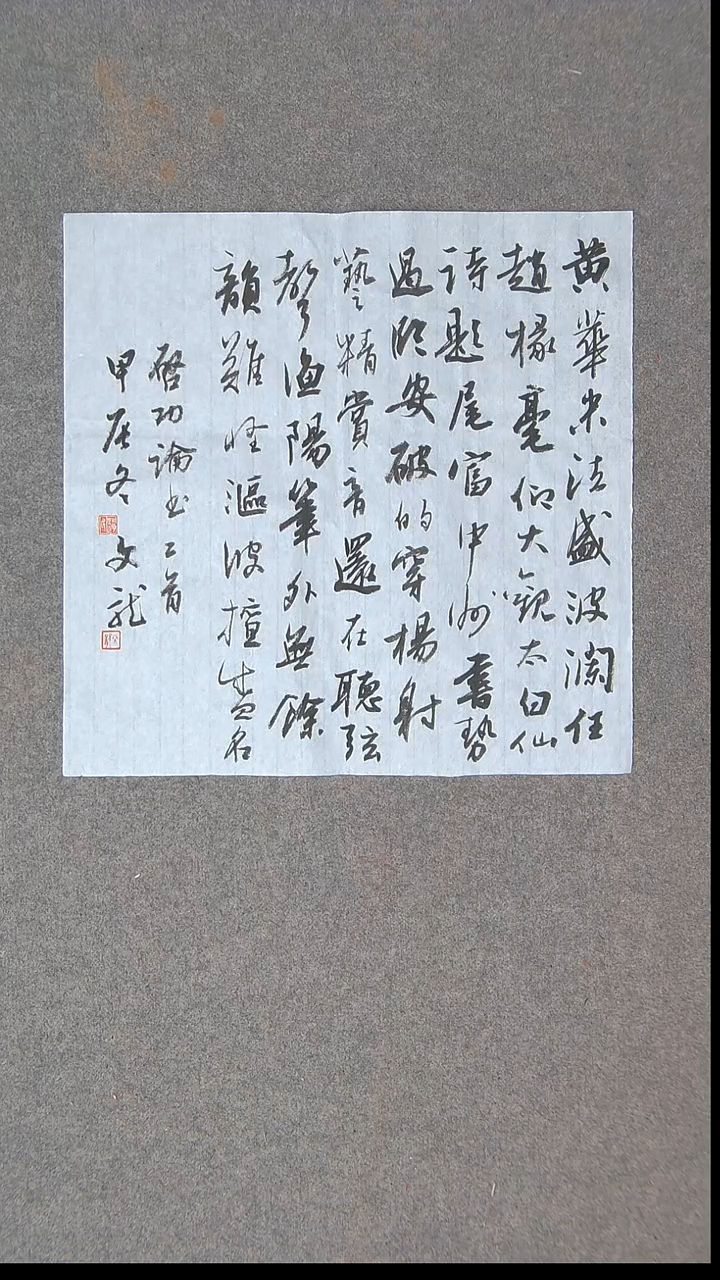 黄華米法盛波瀾任
趙椽毫仰大觀太白仙
詩題尾富中州書勢
過臨安破的穿楊射
藝精賞音還在聽弦
聲漁陽筆外無餘
韻難怪漚波擅盛名
啓功論書二首
甲辰冬 文龍